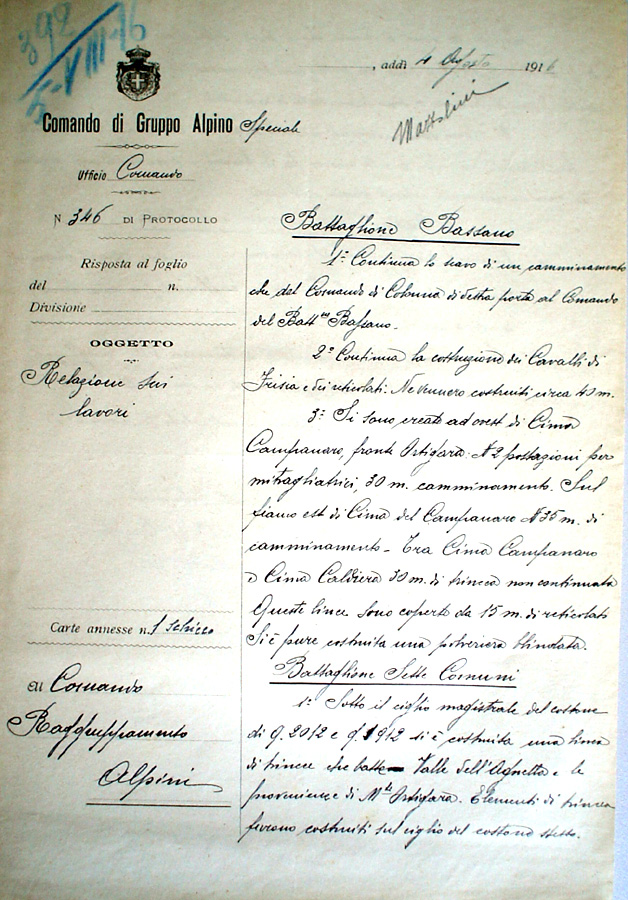 392
5-VIII-16
, addì 4 Agosto 1916
Comando di Gruppo Alpino Speciale
Ufficio Comando
N 346 DI PROTOCOLLO
Risposta al foglio
del n.
Divisione
OGGETTO
Relazione sui
lavori
Carte annesse n. 1 schizzo
Al Comando
Raggruppamento
Alpini
Battaglione Bassano
1º Continua lo scavo di un camminamento
che dal Comando di Colonna di destra porta al Comando
del Battne Bassano.
2º Continua la costruzione dei Cavalli di
Frisia e dei reticolati. Ne vennero costruiti circa 40 m.
3º Si sono create ad ovest di Cima
Campanaro, fronte Ortigara: Nº 2 postazioni per
mitragliatrici, 30 m. camminamento. Sul
fianco est di Cima del Campanaro Nº 35 m. di
camminamento - Tra Cima Campanaro
e Cima Caldiera 30 m. di trincea non continuata
Queste linee sono coperte da 15 m. di reticolati
Si è pure costruita una polveriera blindata.
Battaglione Sette Comuni
1º Sotto il ciglio magistrale del costone
di q. 2012 e q. 1912 si è costruita una linea
di trincee che batte Valle dell'Agnella e le
provenienze di Mte Ortigara. Elementi di trincea
furono costruiti sul ciglio del costone stesso.